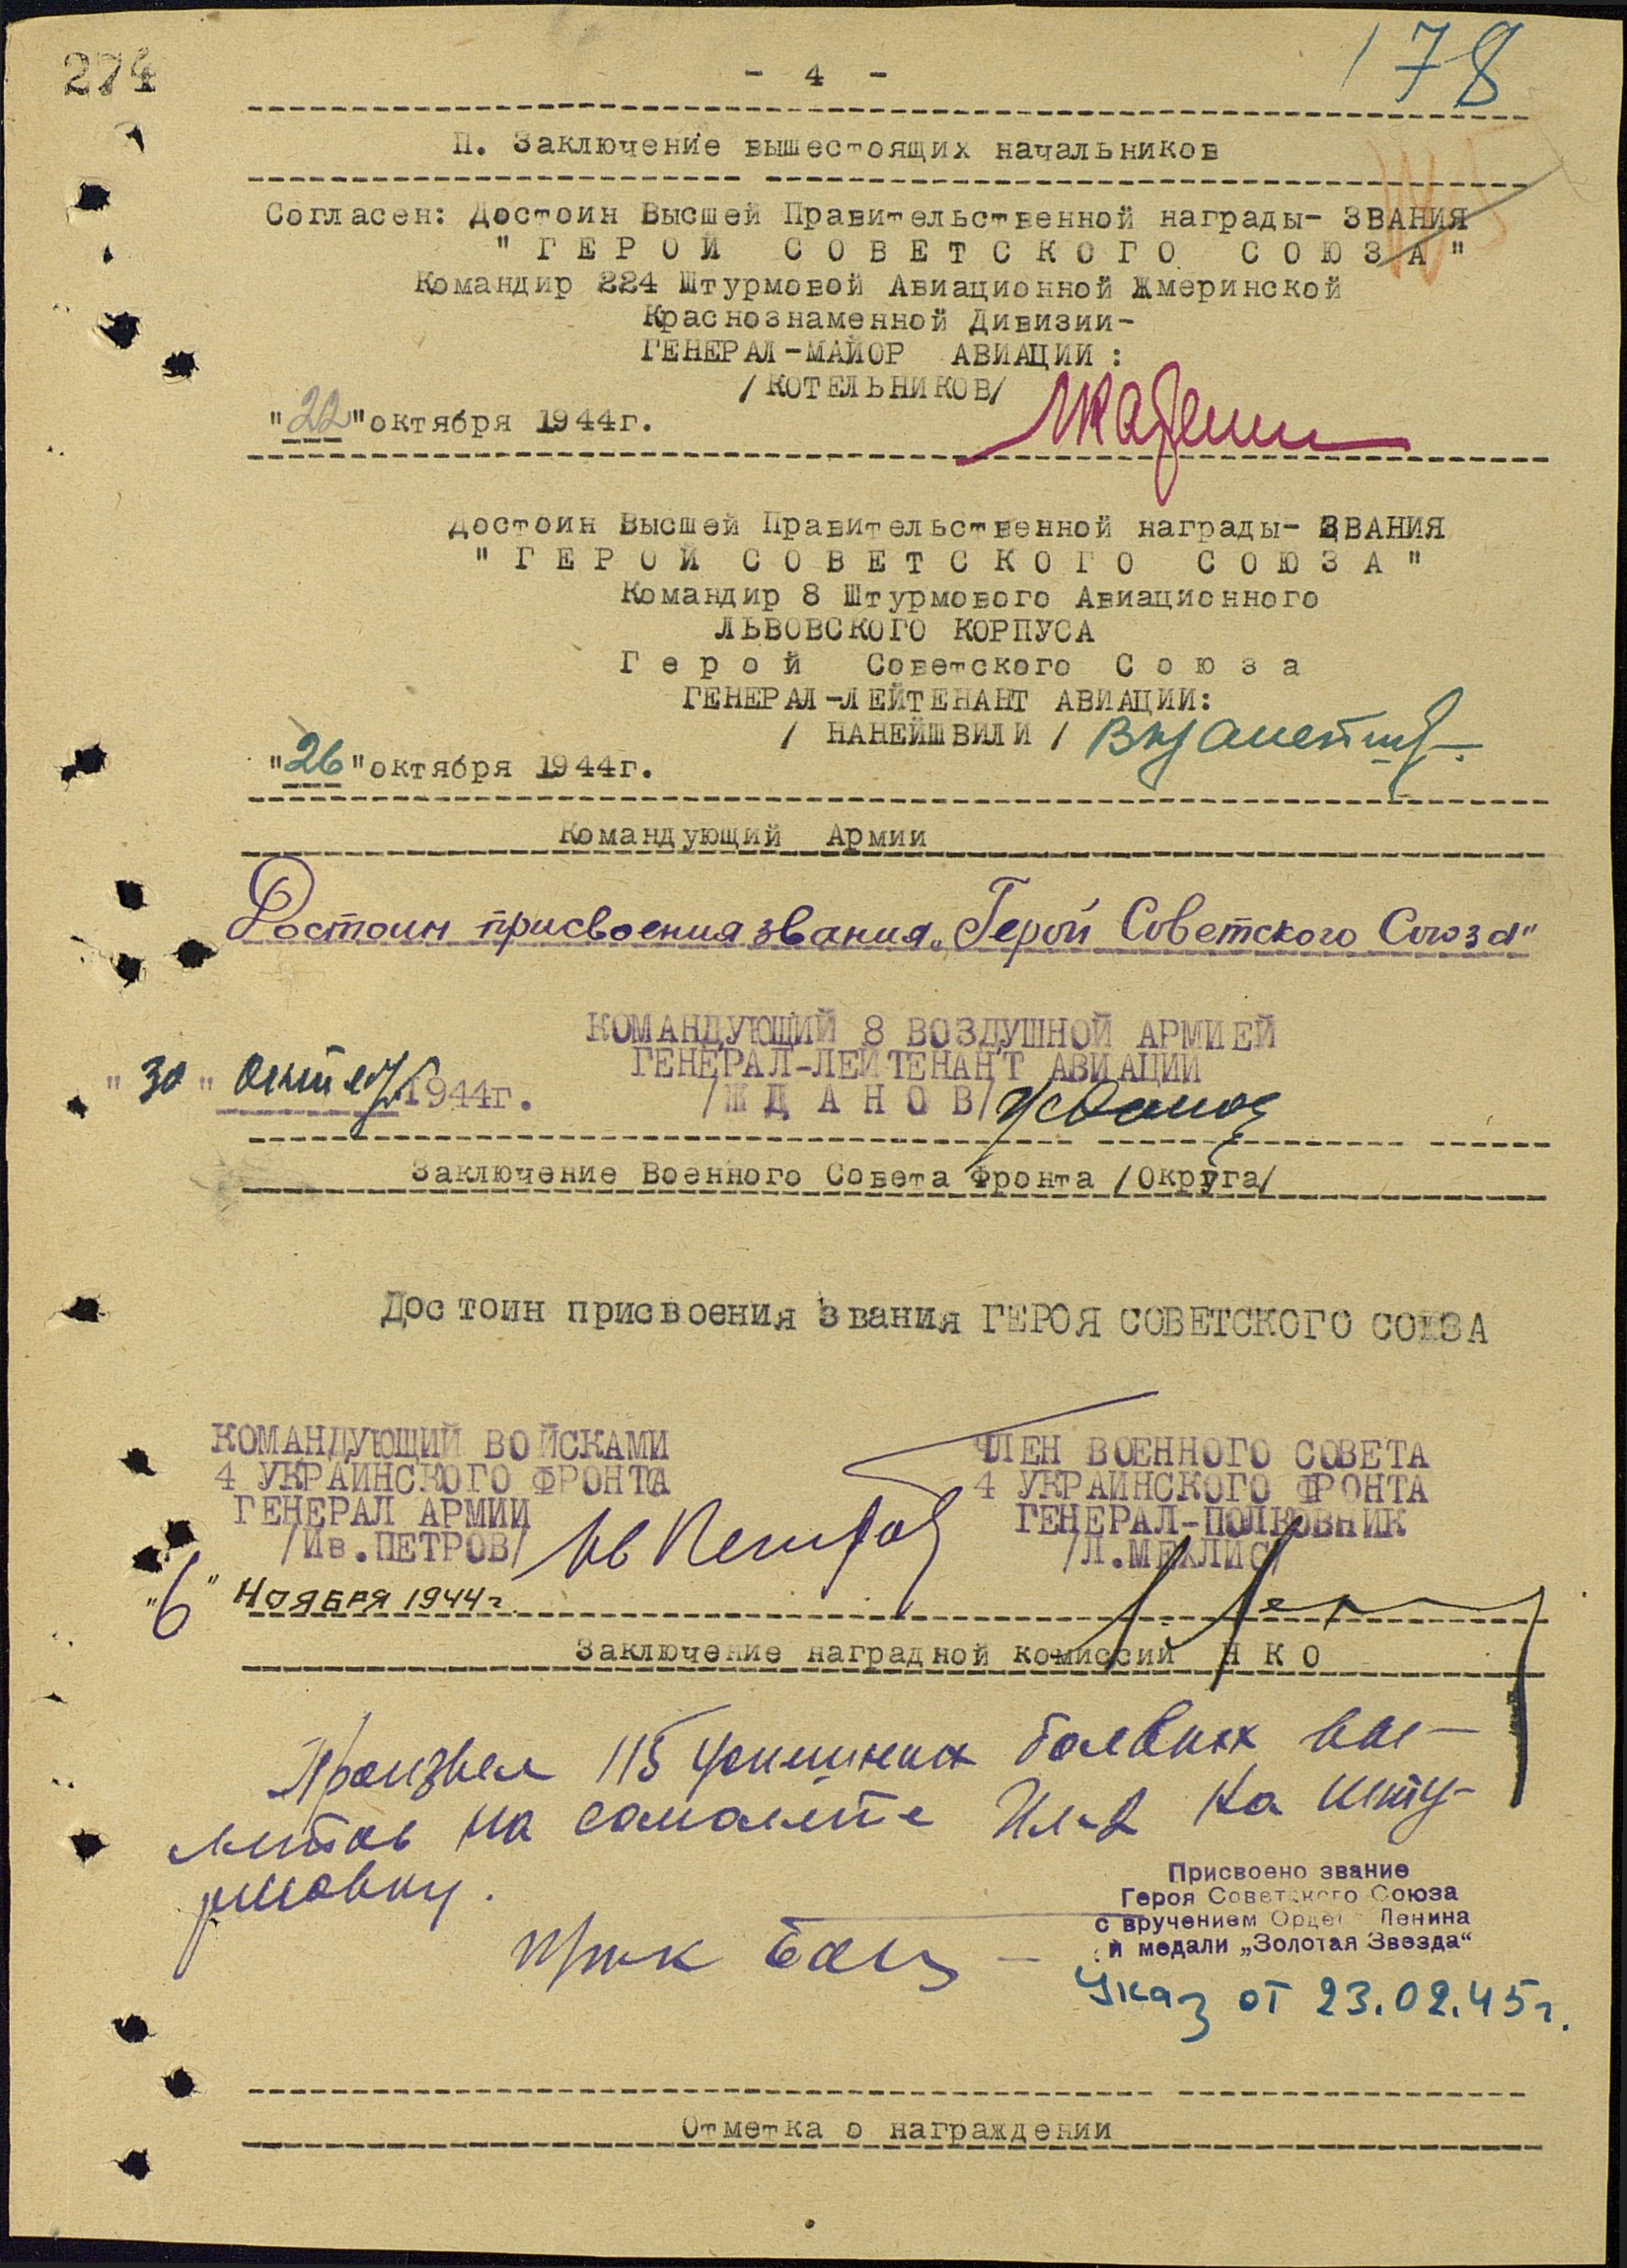 274
- 4 -
178
П. Заключение вышестоящих начальников
Согласен: Достоин Высшей Правительственной награды- ЗВАНИЯ
"ГЕРОЙ СОВЕТСКОГО СОЮЗА"
Командир 224 Штурмовой Авиационной Жмеринской
Краснознаменной Дивизии-
ГЕНЕРАЛ-МАЙОР АВИАЦИИ:
/КОТЕЛЬНИКОВ/
"22" октября 1944г.
Достоин Высшей Правительственной награды- ЗВАНИЯ
"ГЕРОЙ СОВЕТСКОГО СОЮЗА"
Командир 8 Штурмового Авиационного
ЛЬВОВСКОГО КОРПУСА
Герой Советского Союза
ГЕНЕРАЛ-ЛЕЙТЕНАНТ АВИАЦИИ:
/ НАНЕЙШВИЛИ /
"26" октября 1944г.
Командующий Армии
Достоин присвоения звания „Герой Советского Союза"
КОМАНДУЮЩИЙ 8 ВОЗДУШНОЙ АРМИЕЙ
ГЕНЕРАЛ-ЛЕЙТЕНАНТ АВИАЦИИ
/ЖДАНОВ/
"30" октября 1944г.
Заключение Военного Совета Фронта /Округа/
Достоин присвоения звания ГЕРОЯ СОВЕТСКОГО СОЮЗА
КОМАНДУЮЩИЙ ВОЙСКАМИ
4 УКРАИНСКОГО ФРОНТА
ГЕНЕРАЛ АРМИИ
/Ив.ПЕТРОВ/ Ив Петров
ЧЛЕН ВОЕННОГО СОВЕТА
4 УКРАИНСКОГО ФРОНТА
ГЕНЕРАЛ-ПОЛКОВНИК
/Л.МЕХЛИС/
"6" НОЯБРЯ 1944г.
Заключение наградной комиссии НКО
Произвел 115 успешных боевых вы-
летов на самолете Ил-2 на шту-
рмовку.
Присвоено звание
Героя Советского Союза
с вручением Ордена Ленина
и медали „Золотая Звезда"
Указ от 23.02.45г.
Отметка о награждении